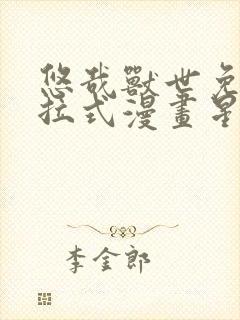 悠哉獸世免
拉式漫畫星
李金郎